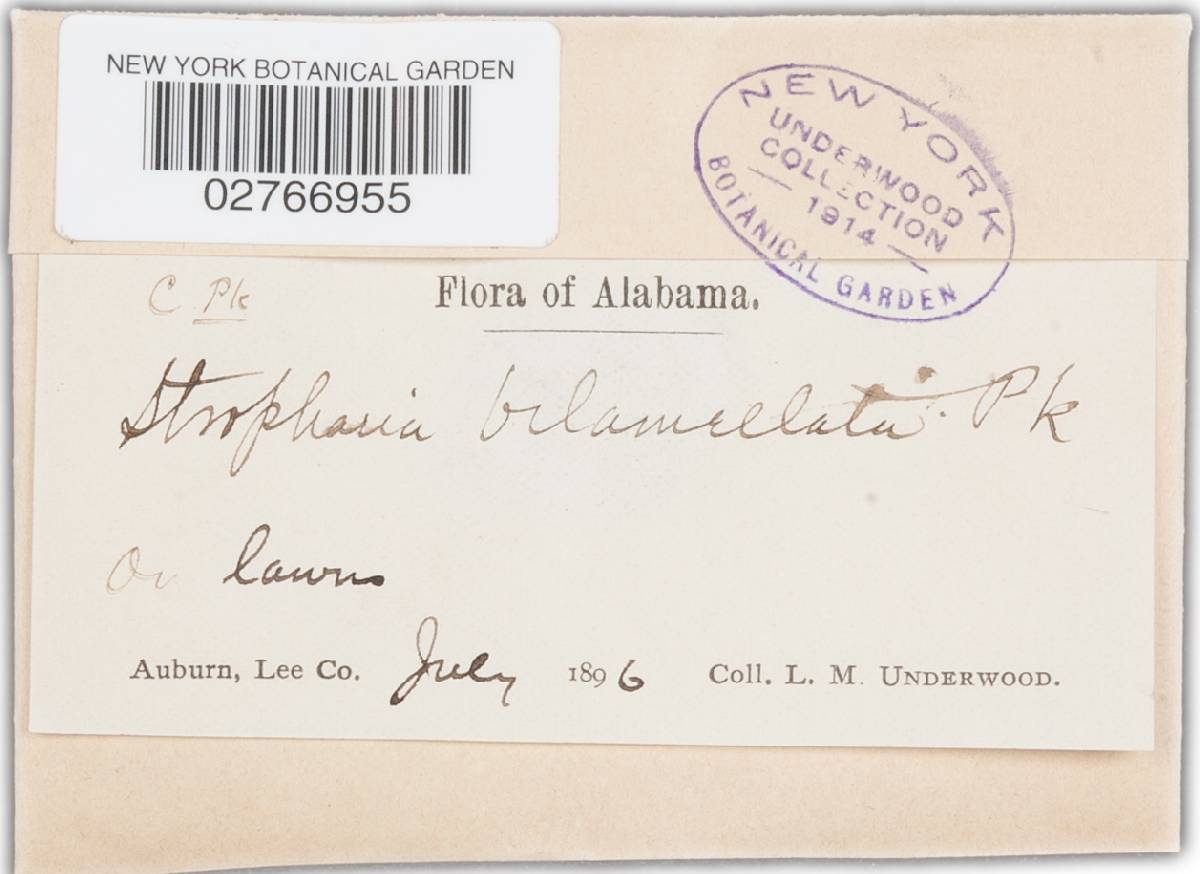 NEW YORK BOTANICAL GARDEN
02766955
NEW YORK
UNDERWOOD
COLLECTION
— 1914 —
BOTANICAL GARDEN
C. Pk
Flora of Alabama.
Stropharia bilamellata. Pk
On lawns
Auburn, Lee Co. July 1896 Coll. L. M. UNDERWOOD.